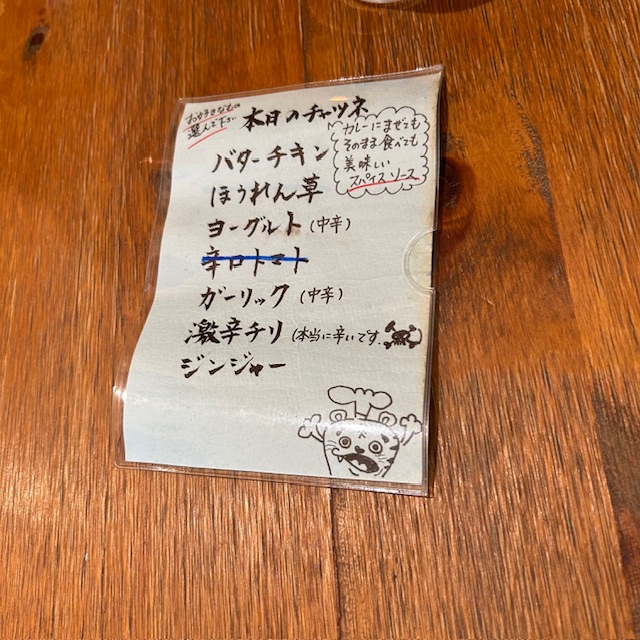 お好きなもの
選んで下さい
本日のチャツネ
カレーにまぜても
そのまま食べても
美味しい
スパイスソース
バターチキン
ほうれん草
ヨーグルト(中辛)
辛口トマト
ガーリック(中辛)
激辛チリ(本当に辛いです。
ジンジャー